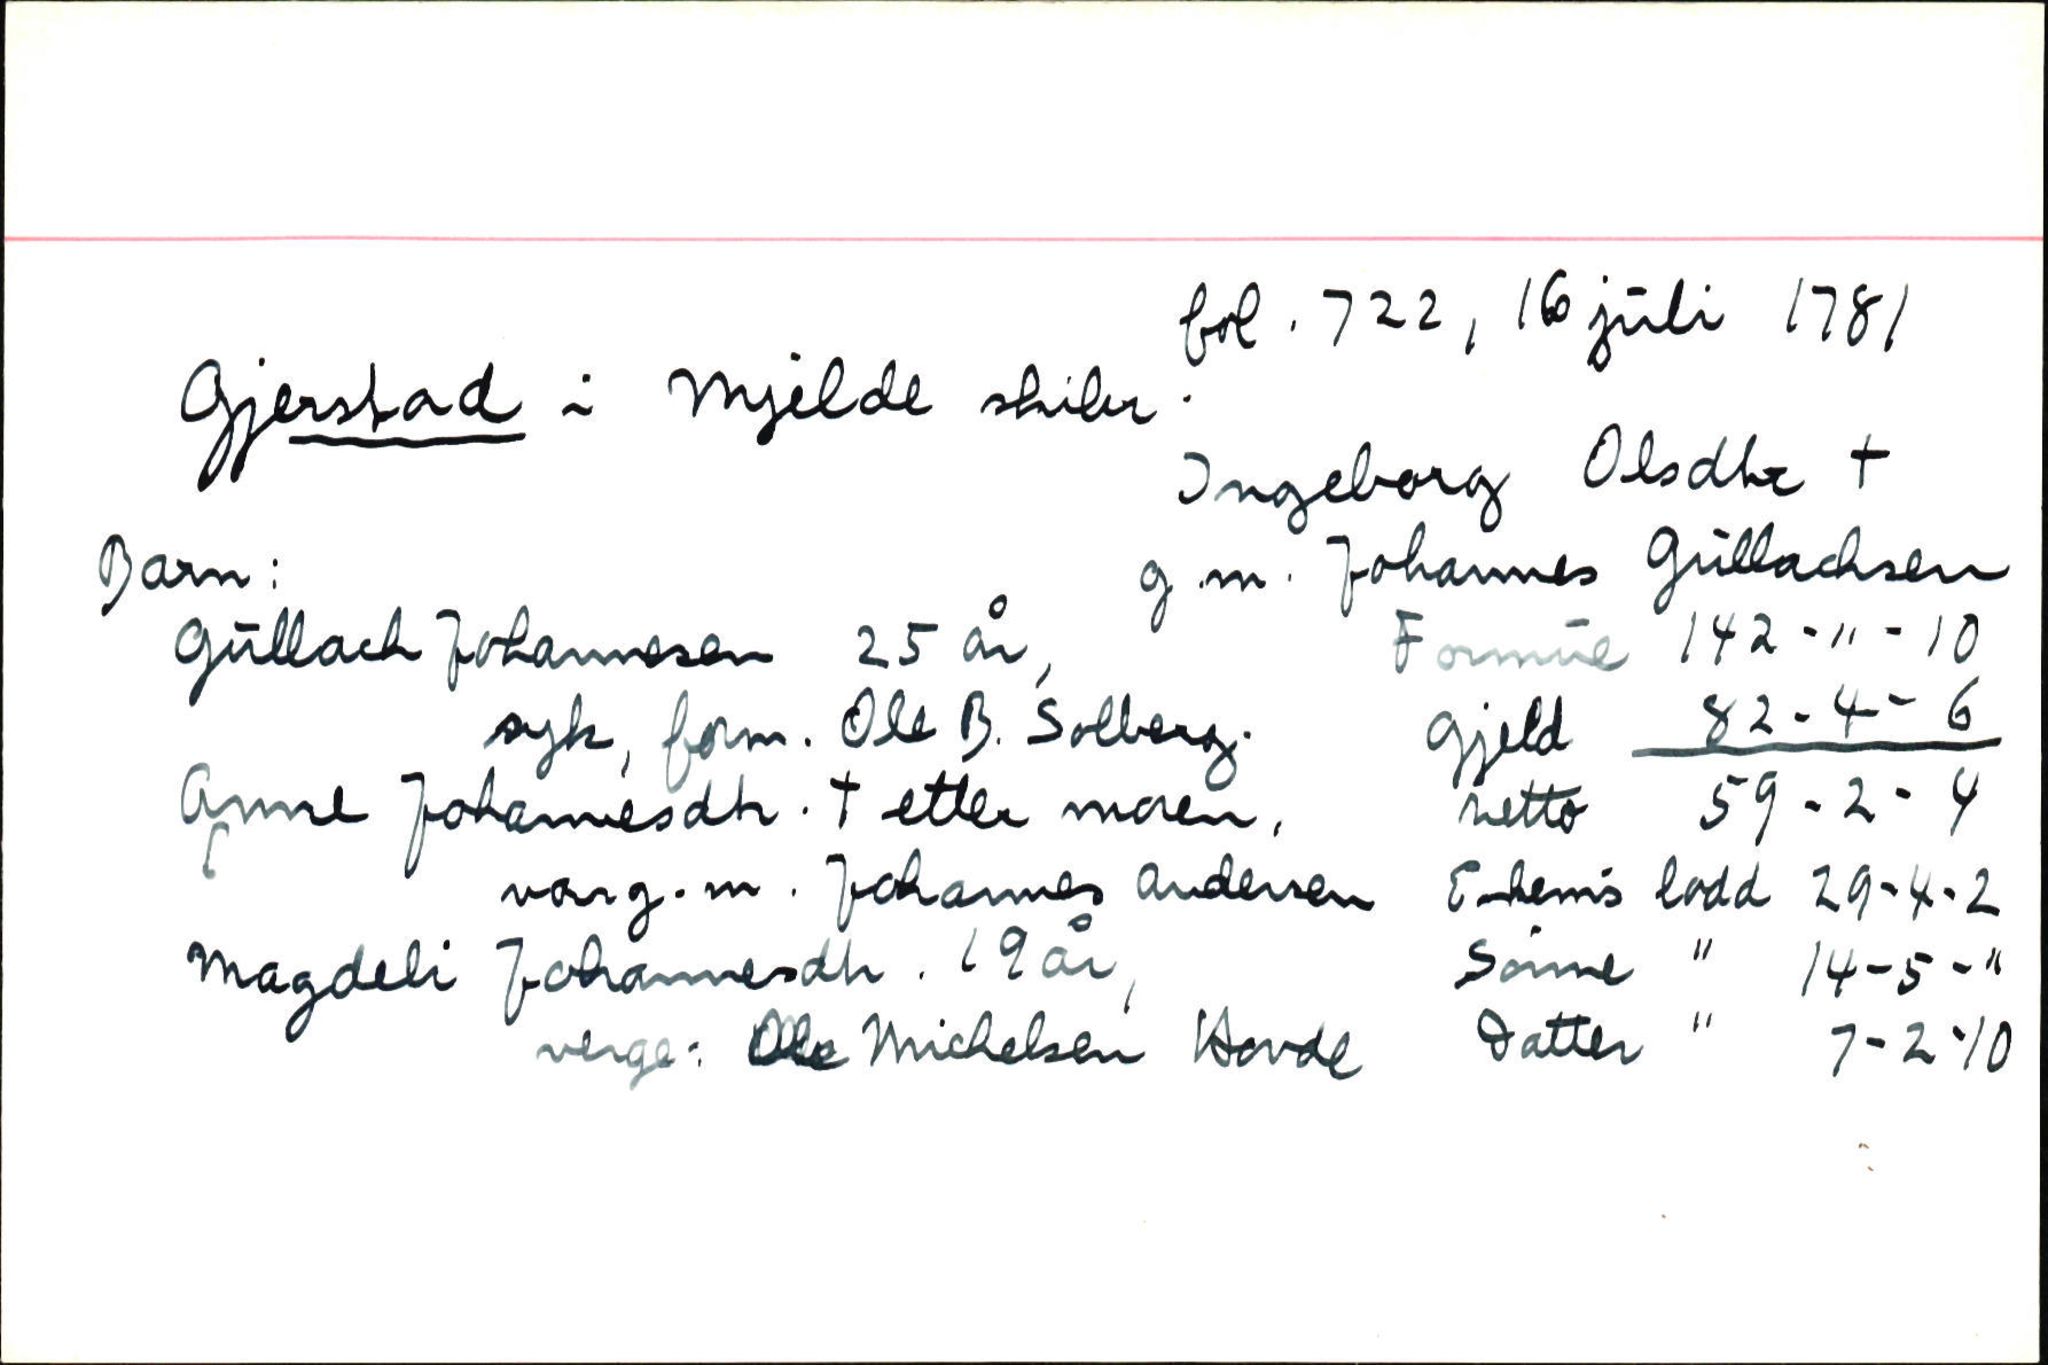 fol. 722, 16 juli 1781
Gjerstad i Mjelde skibr.
Ingeborg Olsdtr †
Barn:
g.m. Johannes Gullachsen
Gullach Johannesen 25 år,
Formue 142-"-10
syk, form. Ole B. Solberg.
Gjeld 82-4-6
Anne Johannesdtr. † etter moren,
netto 59-2-4
var g.m. Johannes Andersen
E-kem's lodd 29-4-2
Magdeli Johannesdtr. 19 år,
Sönne " 14-5-"
verge: Ole Michelsen Hovde
Datter " 7-2-10